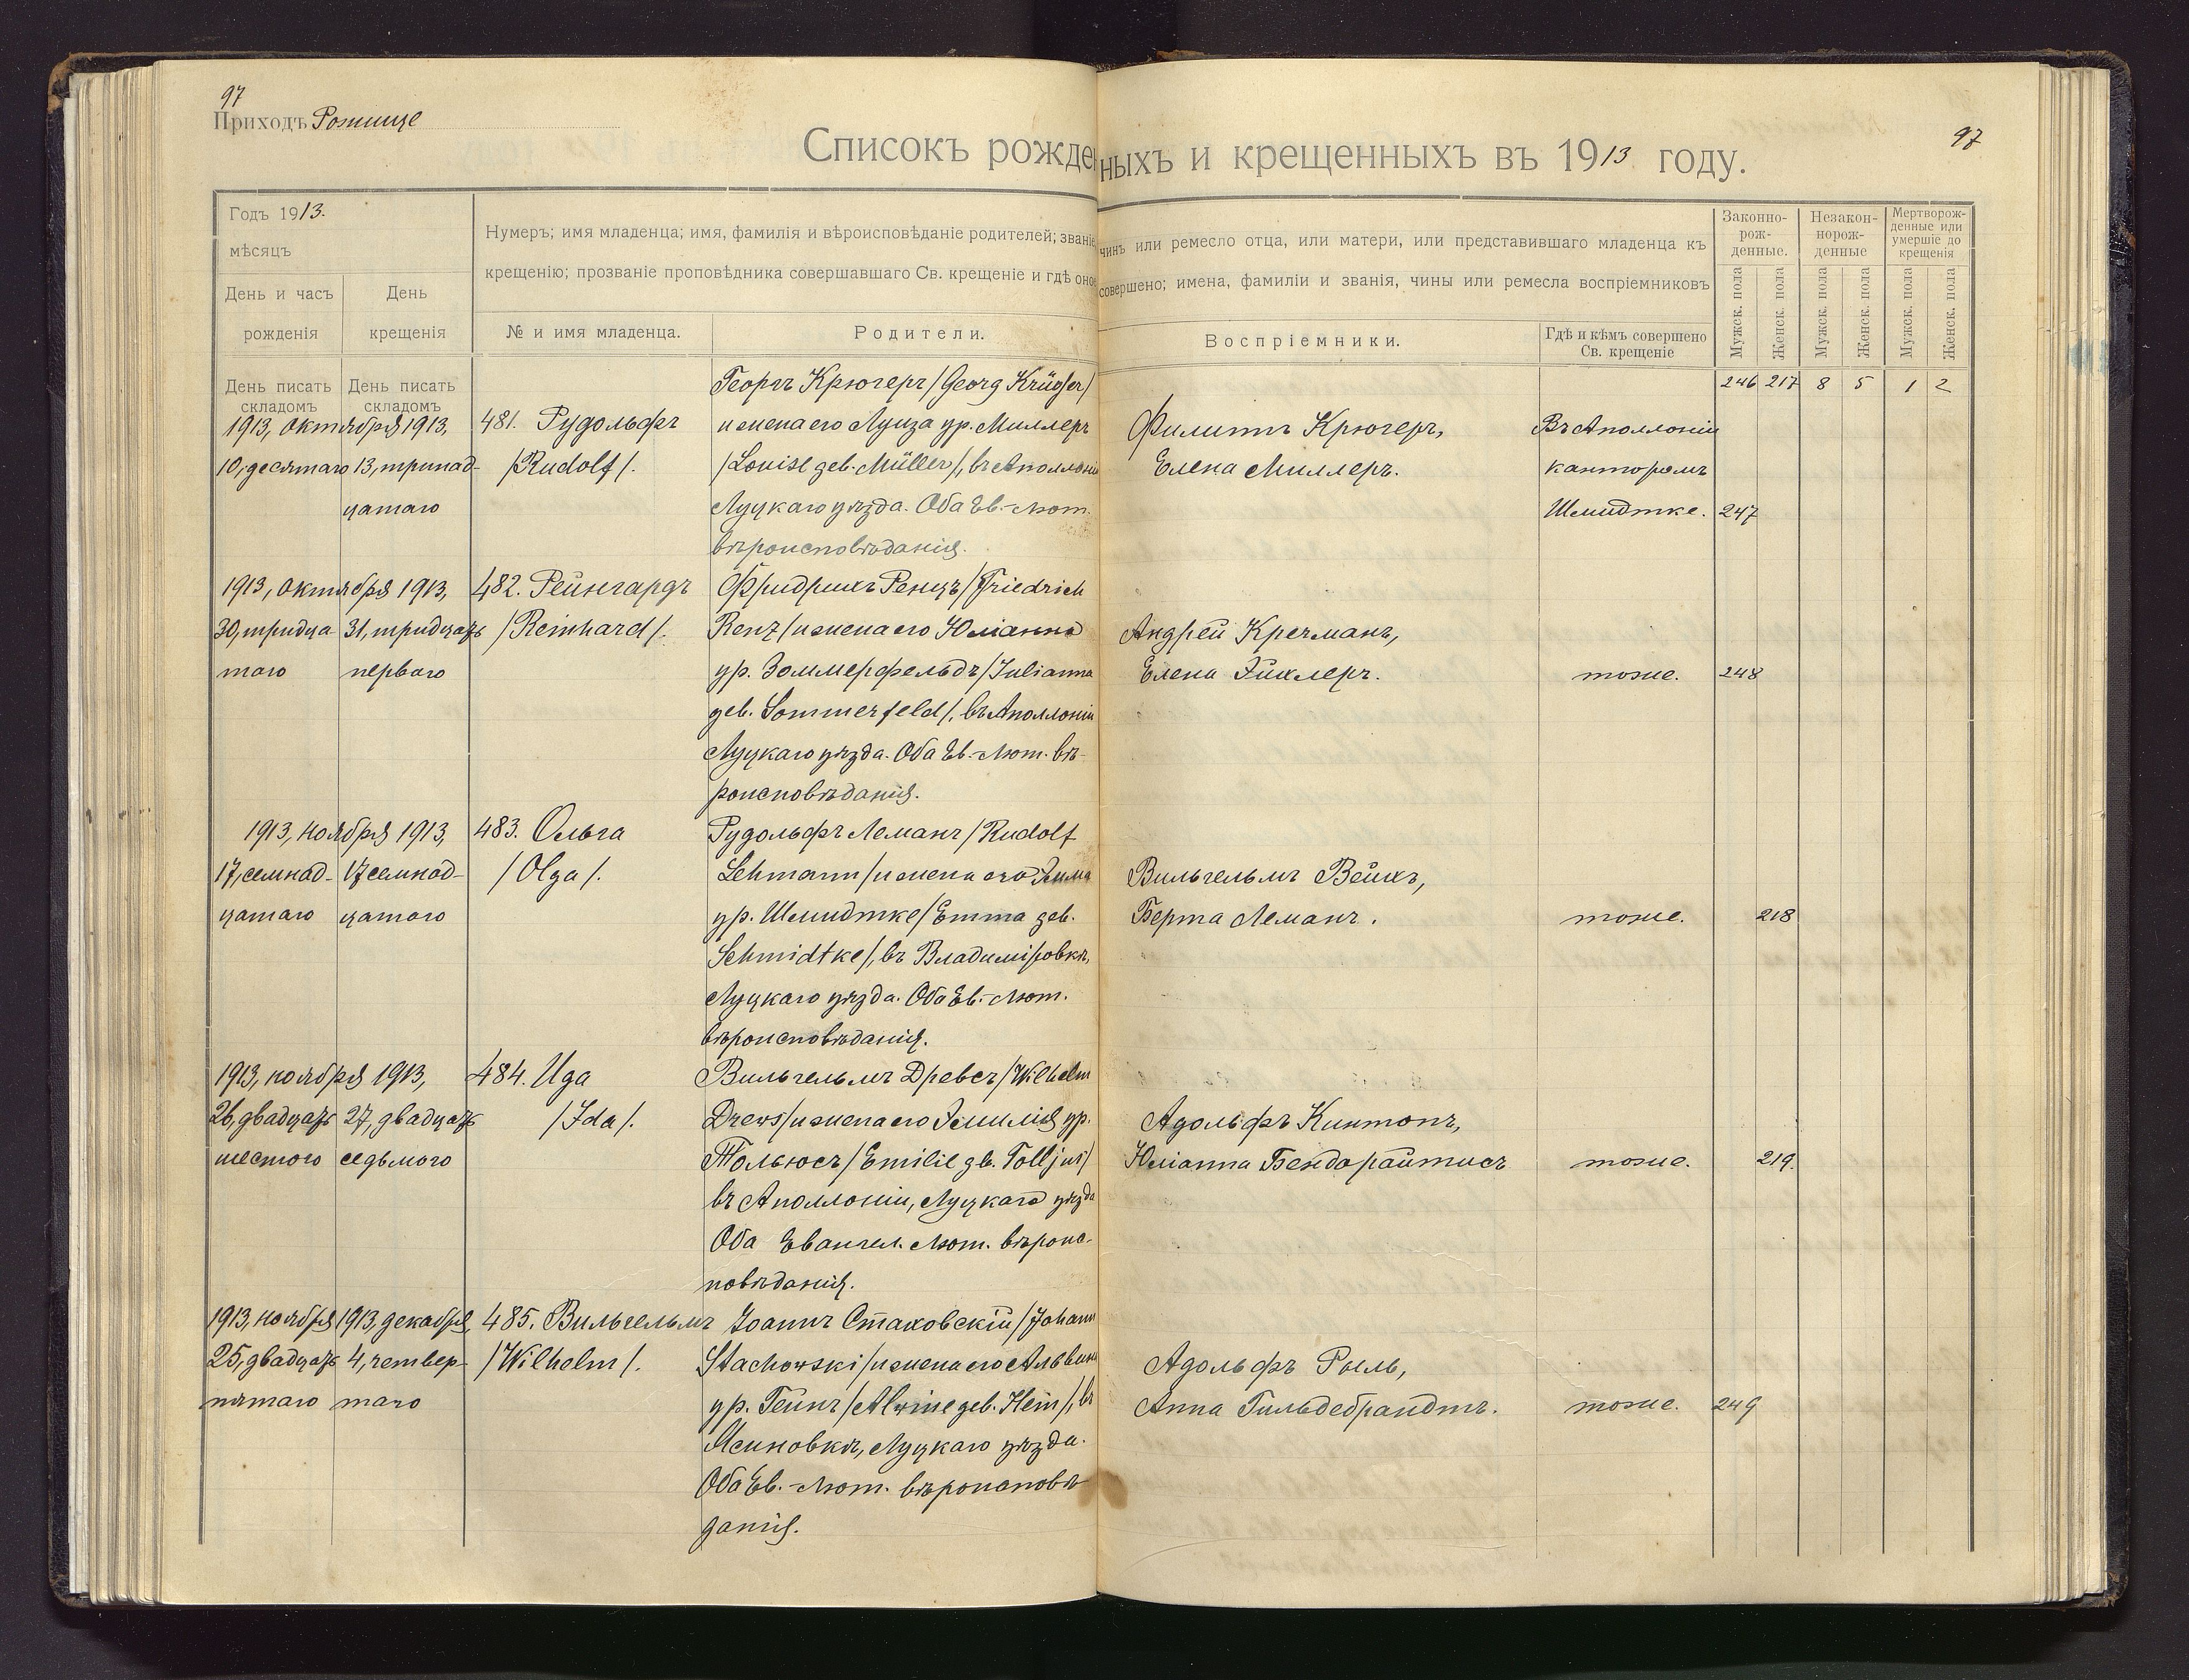 97
Приходъ Рожище
97
Списокъ рожденныхъ и крещенныхъ въ 1913 году.
Годъ 1913.
мѣсяцъ
День и часъ рожденія
День крещенія
Нумеръ; имя младенца; имя, фамилія и вѣроисповѣданіе родителей; званіе, чинъ или ремесло отца, или матери, или представившаго младенца къ
крещенію; прозваніе проповѣдника совершавшаго Св. крещеніе и гдѣ оное совершено; имена, фамиліи и званія, чины или ремесла воспріемниковъ
№ и имя младенца.
Родители.
Воспріемники.
Гдѣ и кѣмъ совершено
Св. крещеніе
Законно-
рож-
денные.
Незакон-
норож-
денные
Мертворож-
денные или
умершіе до
крещенія
Мужск. пола
Женск. пола
Мужск. пола
Женск. пола
Мужск. пола
Женск. пола
День писать складомъ
День писать складомъ
246 217 8 5 1 2
1913, октября 1913,
10, десятаго 13, тринад-
цатаго
481. Рудольфъ
/Rudolf/.
Георгъ Крюгеръ /Georg Krüger/
и жена его Луиза ур. Миллеръ
/Louise geb. Müller/, въ Аполлоніи
Луцкаго уѣзда. Оба Ев.-Лют.
вѣроисповѣданія.
Филиппъ Крюгеръ,
Елена Миллеръ.
Въ Аполлоніи
канторомъ
Шмидтке.
247
1913, октября 1913,
30, тридца- 31, тридцать
таго перваго
482. Рейнгардъ
/Reinhard/.
Фридрихъ Ренцъ /Friedrich
Renz/ и жена его Юліанна
ур. Зоммерфельдъ /Julianna
geb. Sommerfeld/, въ Аполлоніи
Луцкаго уѣзда. Оба Ев.-Лют. вѣ-
роисповѣданія.
Андрей Кречманъ,
Елена Эйхлеръ.
тоже.
248
1913, ноября 1913,
17, семнад- 17 семнад-
цатаго цатаго
483. Ольга
/Olga/.
Рудольфъ Леманъ /Rudolf
Lehmann/ и жена его Эмма
ур. Шмидтке /Emma geb.
Schmidtke/, въ Владиміровкѣ,
Луцкаго уѣзда. Оба Ев.-Лют.
вѣроисповѣданія.
Вильгельмъ Вейхъ,
Берта Леманъ.
тоже.
218
1913, ноября 1913,
26, двадцать 27, двадцать
шестого седьмого
484. Ида
/Ida/.
Вильгельмъ Древсъ /Wilhelm
Drews/ и жена его Эмилія ур.
Тольюсъ /Emilie gb. Tolljus/
въ Аполлоніи, Луцкаго уѣзда
Оба Евангел. Лют. вѣроис-
повѣданія.
Адольфъ Кинтопъ,
Юліанна Бендарайтисъ
тоже.
219.
1913, ноября 1913, декабря,
25, двадцать 4, четвер-
пятаго таго
485. Вильгельмъ
/Wilhelm/.
Іоаннъ Стаховскій /Johann
Stachowski/ и жена его Альвина
ур. Гейнъ /Alwine geb. Hein/, въ
Ясиновкѣ, Луцкаго уѣзда.
Оба Ев.-Лют. вѣроисповѣ
данія.
Адольфъ Рыль,
Анна Гильдебрандтъ.
тоже.
249